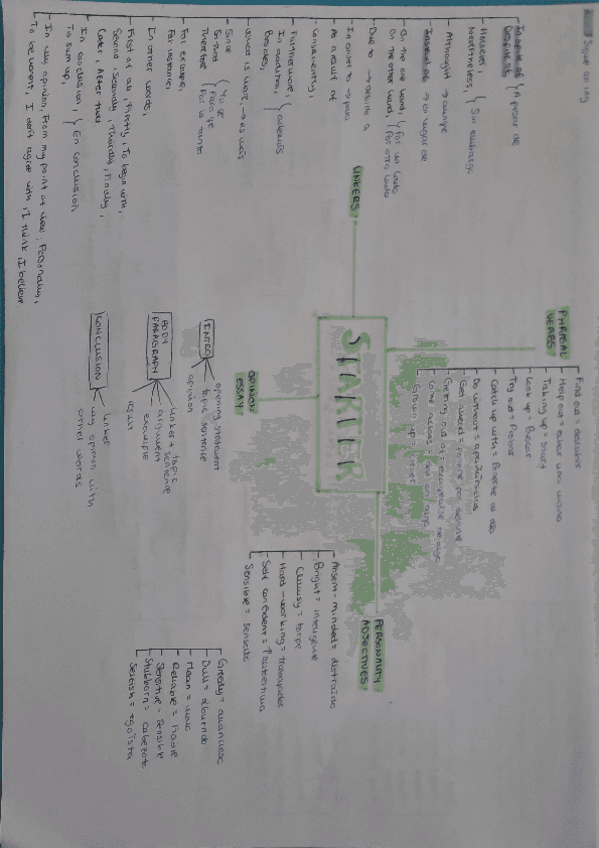 STARTER
LINKERS
In spite of
Despite of } A pesar de
However,
Nevertheless, } Sin embargo
Althought → aunque
Instead of → en lugar de
On the one hand, } Por un lado
On the other hand, } Por otro lado
Due to → debido a
In order to → para
As a result of
Consecuently,
Furthermore,
In addition, } además
Besides,
What is more, → es más
Since
Therefore } Por lo tanto
For example,
For instance,
In other words,
First of all, Firstly, To begin with,
Second, Secondly, Thirdly, Finally,
Later, After that
In conclusion, } En conclusión
To sum up,
In my opinion, From my point of view, Personally,
To be honest, I don't agree with, I think, I believe
PHRASAL VERBS
Find out = descubrir
Help out = echar una mano
Taking up = start
Look up = Buscar
Try out = Probar
Catch up with = Ponerte al día
Do without =
Get ahead = ponerte por delante
Getting out of =
Come across =
Grown up =
OPINION ESSAY
INTRO
opening statement
topic sentence
opinion
BODY PARAGRAPH
linker + topic sentence
argument
example
result
CONCLUSION
linker
my opinion with other words
PERSONALITY ADJECTIVES
Absent-minded = distraído
Bright = inteligente
Clumsy = torpe
Hard-working = trabajador
Self confident = ↑ autoestima
Sensible = sensato
Greedy = avaricioso
Dull = aburrido
Mean = malo
Reliable = fiable
Sensitive = sensible
Stubborn = cabezota
Selfish = egoísta